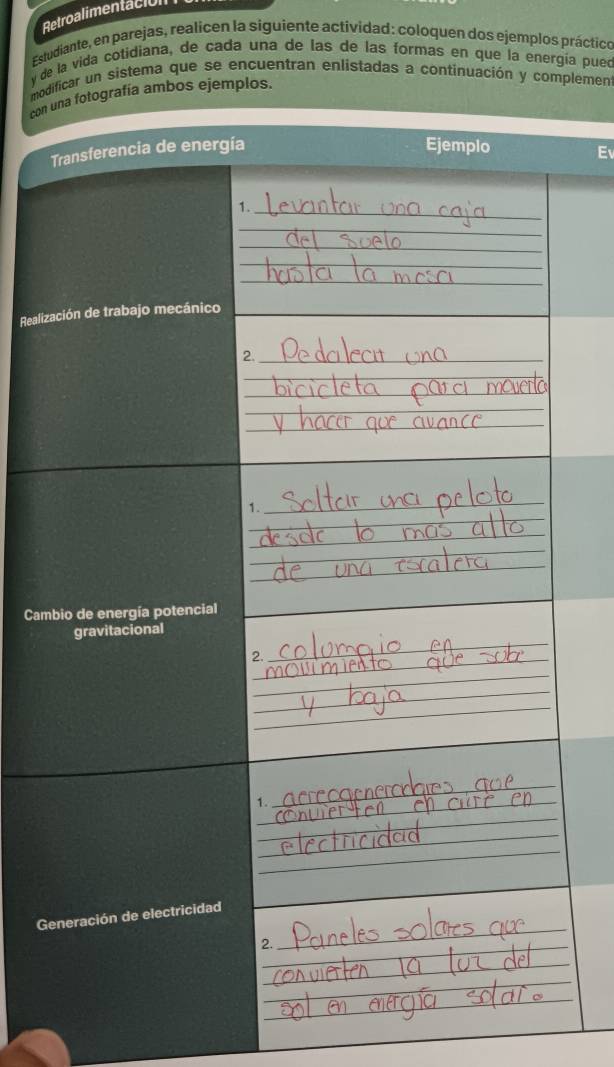 Retroalimentación
Estudiante, en parejas, realicen la siguiente actividad: coloquen dos ejemplos práctico
y de la vida cotidiana, de cada una de las de las formas en que la energía pued
modificar un sistema que se encuentran enlistadas a continuación y complement
con una fotografía ambos ejemplos.
Transferencia de energía
Ejemplo
Ev
Realización de trabajo mecánico
1. Levantar una caja
del suelo
hasta la mesa
2. Pedalear una
bicicleta para moverla
y hacer que avance
Cambio de energía potencial
gravitacional
1. Soltar una pelota
desde lo mas alto
de una escalera
2. columpio en
movimiento que sobe
y baja
Generación de electricidad
1. aereogeneradores que
convierten en aire en
electricidad
2. Paneles solares que
convierten la luz del
sol en energía solar.